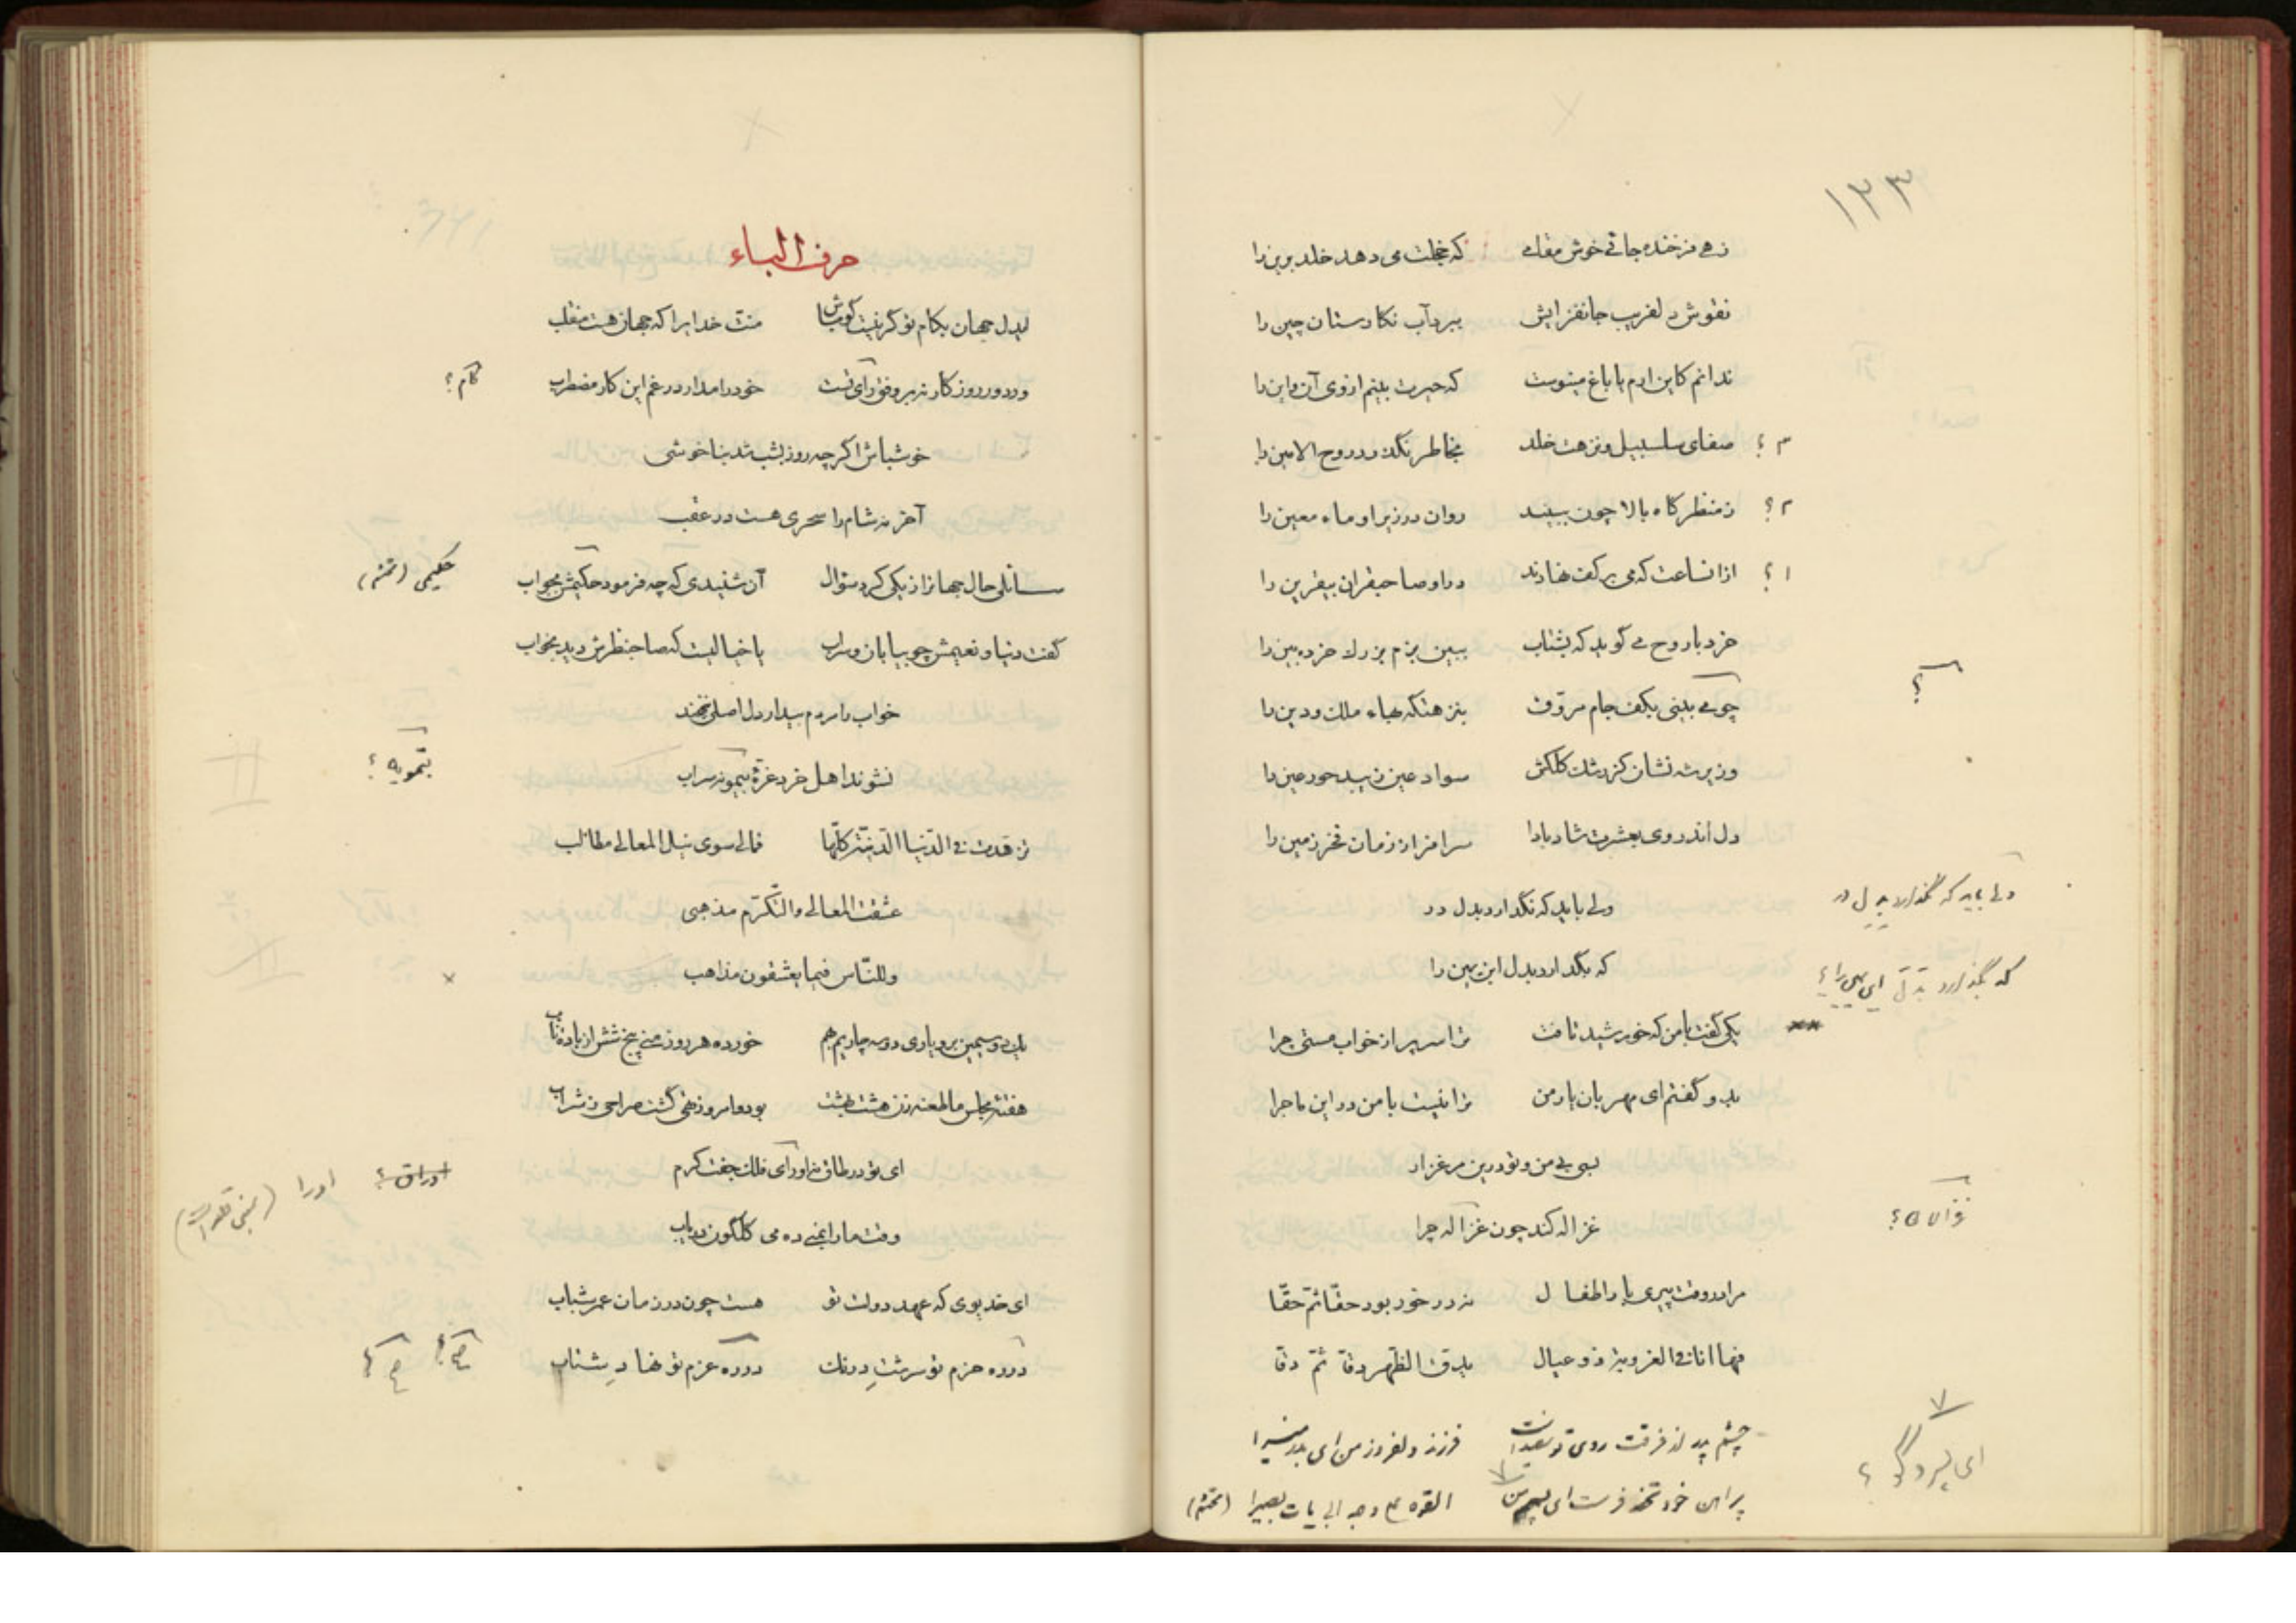 ۱۳۳
زهی فرخنده جائی خوش مقامی که خجلت می دهد خلد برین را
نقوش دلفریب جانفزایش ببرد آب نکارستان چین را
ندانم کاین ارم یا باغ مینوست که حیرت بینم از وی آن و این را
۳ ؟ صفای سلسبیل و نزهت خلد بخاطر نگذرد روح الامین را
۲ ؟ ز منظر کاه بالا چون ببیند روان در زیر او ماء معین را
۱ ؟ از انساعت که می بر کف نهادند در او صاحبقران بیقرین را
خرد با روح می کوید که بشتاب ببین بزم بزرک خرده بین را
چو می بینی بکف جام مروّق بنزهتکه بهاء ملک و دین را
؟
وزیر شه نشان کز رشک کلکش سواد عین زیبد حور عین را
دل اندر وی بعشرت شاد بادا سرافراز زمان فخر زمین را
ولی باید که نگذارد بدل در
ولی باید که نگذارد بدل در
که بگذارد بدل ابن یمین را
که بگذارد بدل ابن یمین را ؟
یکی کفت با من که خورشید تافت ترا سر پر از خواب مستی چرا
بدو گفتم ای مهربان یار من ترا نیست با من در این ماجرا
بسی بی من و تو درین مرغزار
غزاله کند چون غزاله چرا
غزالان ؟
مرا در وقت پیری با اطفال نه در خور بود حقّا ثمّ حقّا
فها انا فی الغروبة ذو عیال یدق الظهر دقا ثمّ دقا
چشم پدر از فرقت روی تو فرزند دلفروز من ای بدر منیرا
ای پسرک ؟
پراهن خود تحفه فرست ای پسر من القوه علی وجه ابی یأت بصیرا
حرف الباء
ایدل جهان بکام تو کر نیست کو مباش منت خدایرا که جهان هست منقلب
ور دور روزکار نه بر وفق رای تست خود را مدار در غم این کار مضطرب
کام ؟
خوشباش اکر چه روز بشب شد بناخوشی
آخر نه شام را سحری هست در عقب
سائلی حال جهانرا ز یکی کرد سؤال آن شنیدی که چه فرمود حکیمش بجواب
حکیمی
کفت دنیا و نعیمش چو بیابان و سراب یا خیالیست که صاحبنظرش دید بخواب
خواب را مردم بیدار دل اصلی ننهند
نشوند اهل خرد غرّه بتمویه سراب
بتمویه ؟
فی الدّنیا الدّنیّة کلّها فمالی سوی نیل المعالی مطالب
عشقت المعالی والتّکرّم مذهبی
وللنّاس فیما یعشقون مذاهب
یک دو سیمین بر و باری دو سه چاریم بهم خورده هر روز منی پنج شش از باده ناب
بود امروز تهی گشت صراحی ز شراب
ای تو در طاق نه اورای فلک جفت کرم
اوراق ؟ اورا
وقت ما را بمنی ده می کلگون دریاب
ای خدیوی که عهد دولت تو هست چون در زمان عمر شباب
در ره حزم تو سرشت درنک در ره عزم تو نهاد شتاب